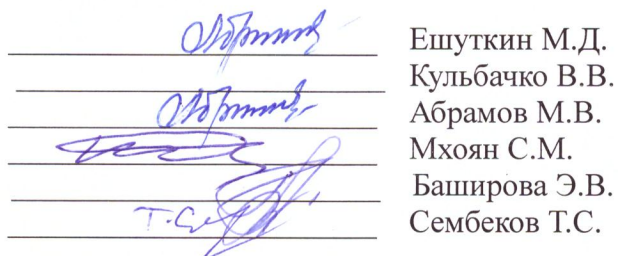 Ешуткин М.Д.
Кульбачко В.В.
Абрамов М.В.
Мхоян С.М.
Баширова Э.В.
Сембеков Т.С.